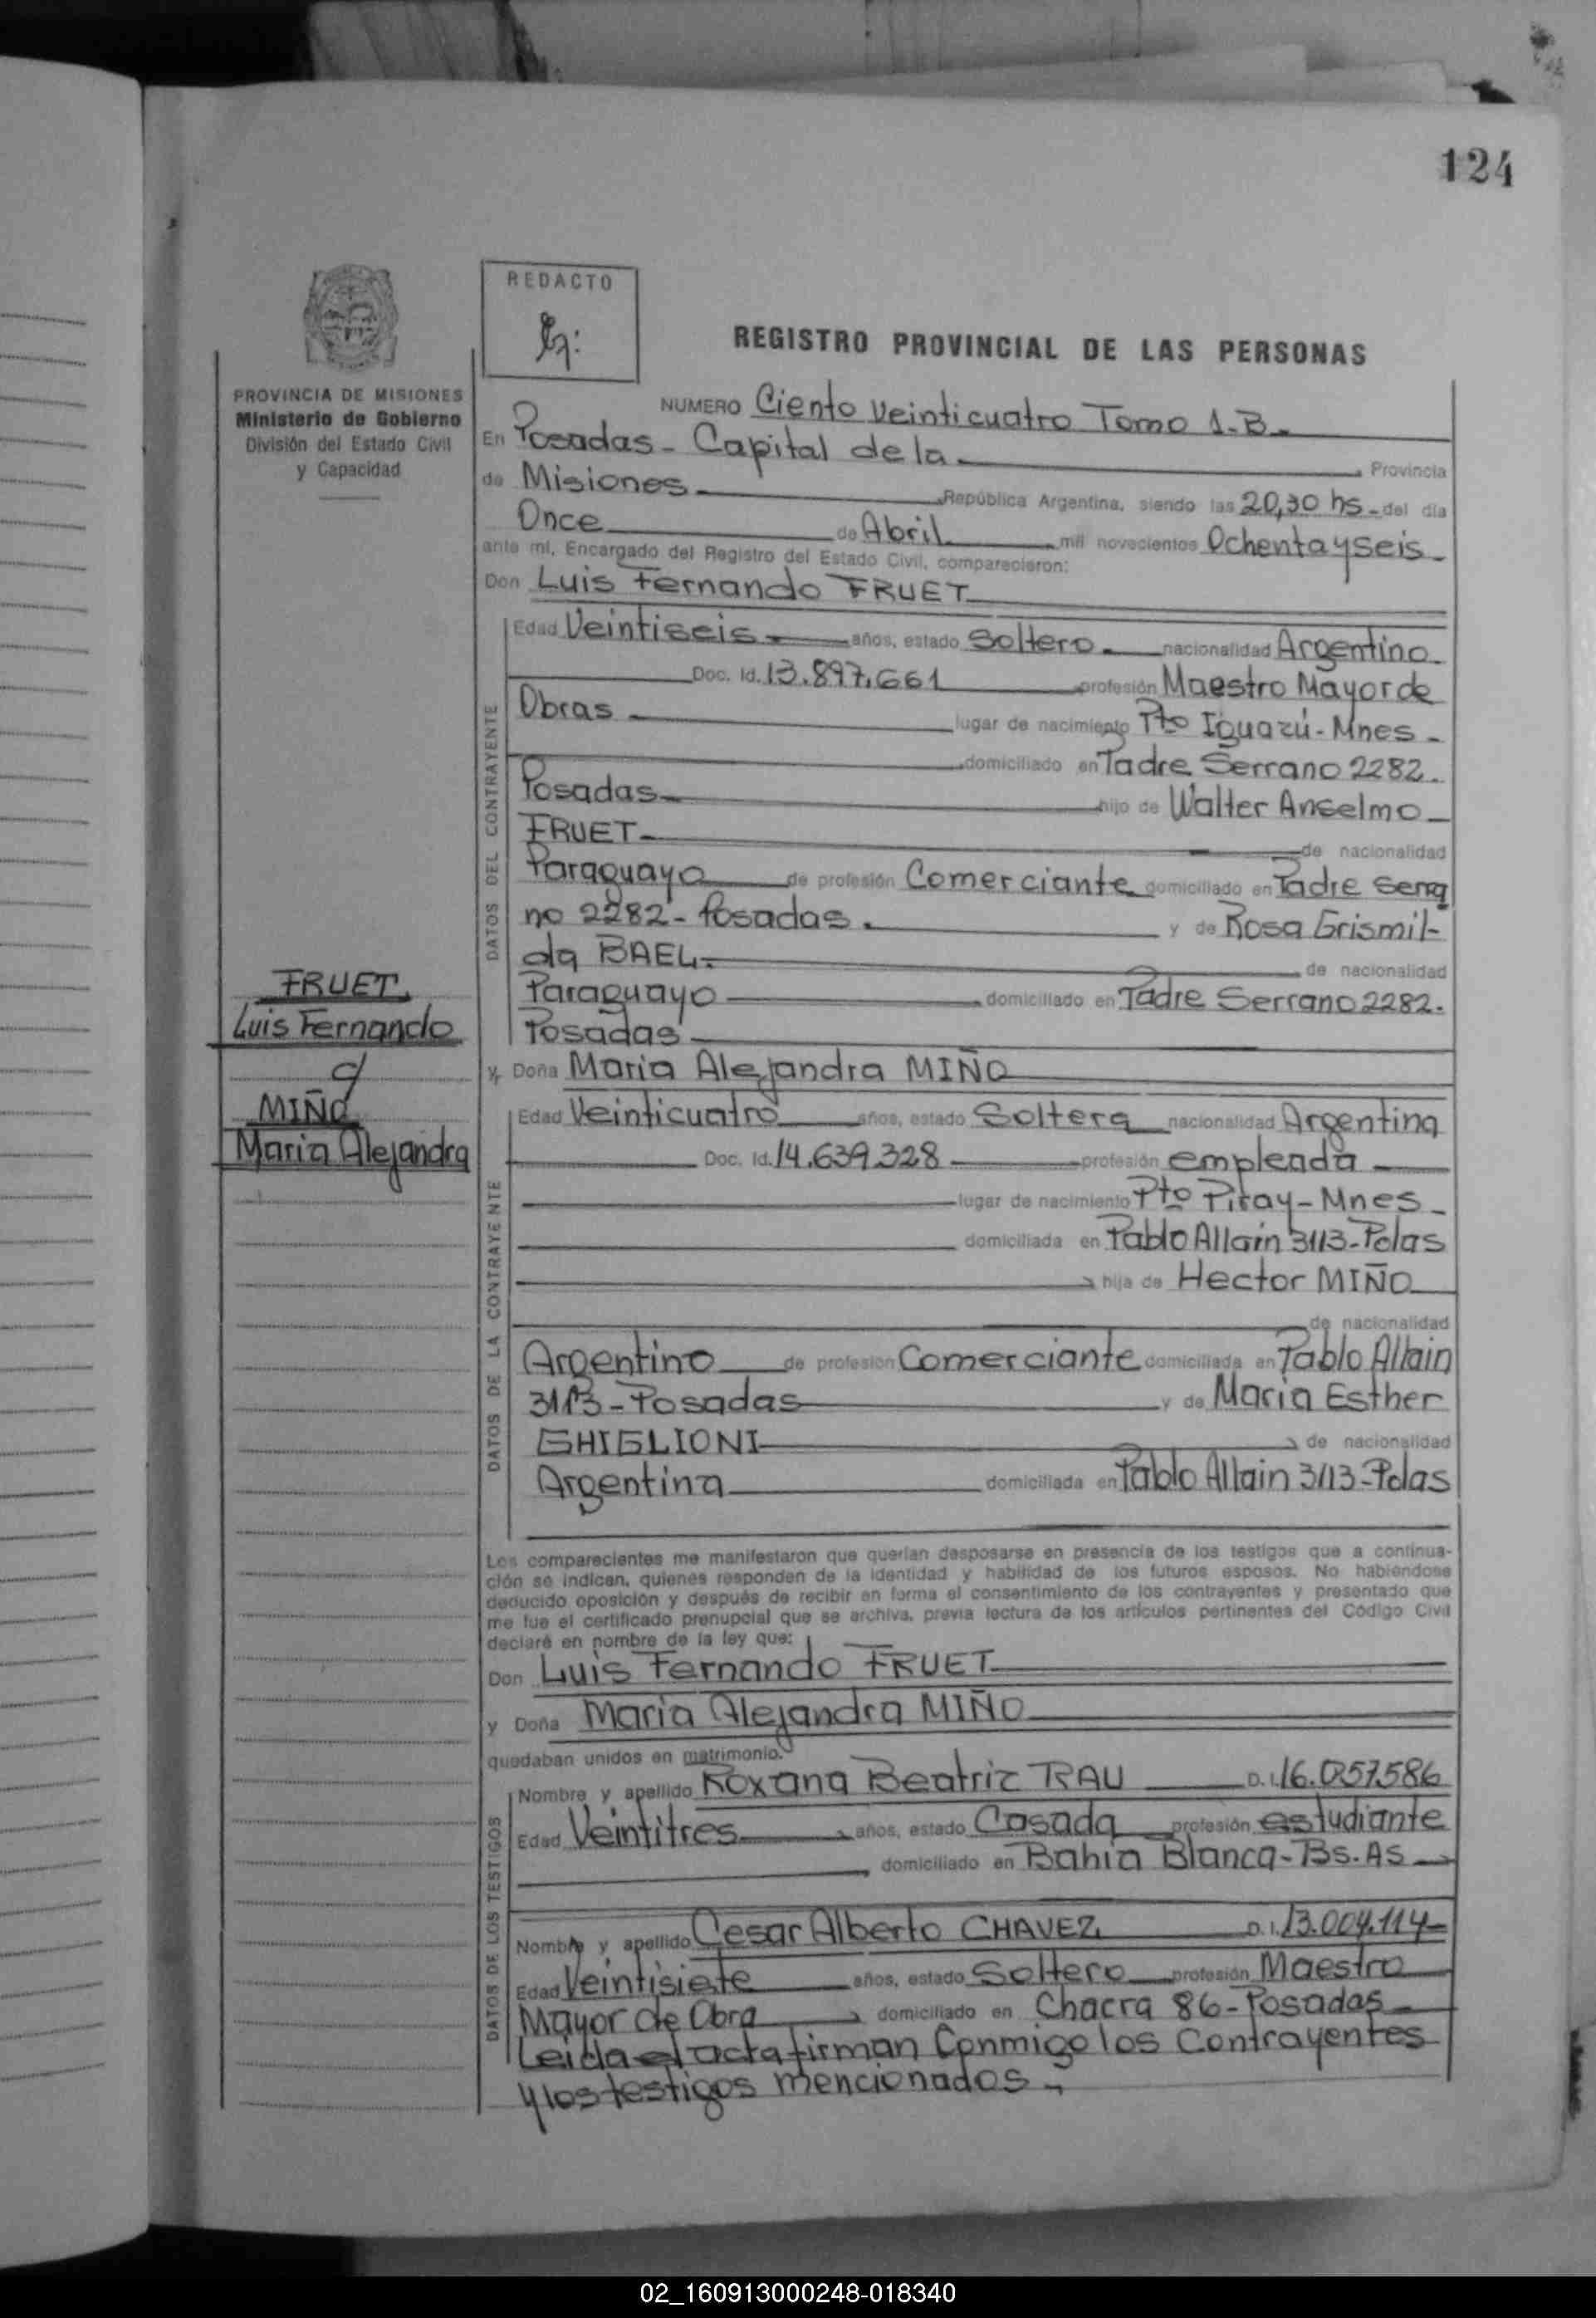 124
REDACTO
REGISTRO PROVINCIAL DE LAS PERSONAS
PROVINCIA DE MISIONES
Ministerio de Gobierno
División del Estado Civil
y Capacidad
NUMERO Ciento Veinticuatro Tomo 1-B-
En Posadas - Capital de la Provincia
de Misiones República Argentina, siendo las 20,30 hs - del día
Once de Abril mil novecientos Ochentayseis -
ante mí, Encargado del Registro del Estado Civil, comparecieron:
Don Luis Fernando FRUET
DATOS DEL CONTRAYENTE
Edad Veintiseis años, estado Soltero nacionalidad Argentino
Doc. Id. 13.897.661 profesión Maestro Mayor de
Obras lugar de nacimiento Pto Iguazú - Mnes -
domiciliado en Padre Serrano 2282
Posadas hijo de Walter Anselmo
FRUET de nacionalidad
Paraguayo de profesión Comerciante domiciliado en Padre Serra
no 2282 - Posadas y de Rosa Grismil-
da BAEL de nacionalidad
Paraguayo domiciliado en Padre Serrano 2282.
Posadas
FRUET
Luis Fernando
MIÑO
Maria Alejandra
y Doña Maria Alejandra MIÑO
DATOS DE LA CONTRAYENTE
Edad Veinticuatro años, estado Soltera nacionalidad Argentina
Doc. Id. 14.639.328 profesión empleada
lugar de nacimiento Pto Piray - Mnes -
domiciliada en Pablo Allain 3113 - Pdas
hija de Hector MIÑO
de nacionalidad
Argentino de profesión Comerciante domiciliada en Pablo Allain
3113 - Posadas y de Maria Esther
GHIGLIONI de nacionalidad
Argentina domiciliada en Pablo Allain 3113 - Pdas
Los comparecientes me manifestaron que querían desposarse en presencia de los testigos que a continua-
ción se indican, quienes responden de la identidad y habilidad de los futuros esposos. No habiéndose
deducido oposición y después de recibir en forma el consentimiento de los contrayentes y presentado que
me fue el certificado prenupcial que se archiva, previa lectura de los artículos pertinentes del Código Civil
declaré en nombre de la ley que:
Don Luis Fernando FRUET
y Doña Maria Alejandra MIÑO
quedaban unidos en matrimonio.
DATOS DE LOS TESTIGOS
Nombre y apellido Roxana Beatriz RAU D. I. 16.057.586
Edad Veintitres años, estado Casada profesión estudiante
domiciliado en Bahia Blanca - Bs. As
Nombre y apellido Cesar Alberto CHAVEZ D. I. 13.004.114
Edad Veintisiete años, estado Soltero profesión Maestro
Mayor de Obra domiciliado en Chacra 86 - Posadas
Leida el acta firman Conmigo los Contrayentes
y los testigos mencionados
02_160913000248-018340